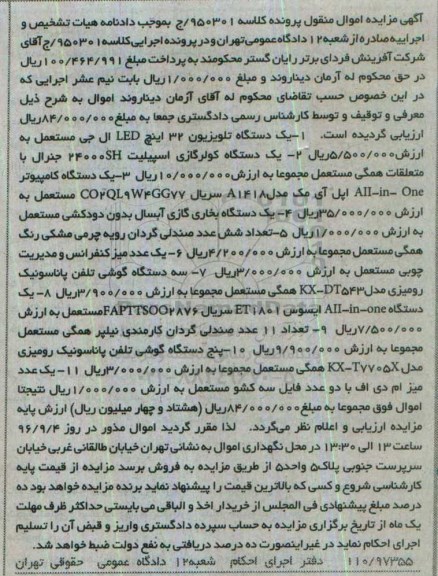 آگهی مزایده اموال منقول پرونده کلاسه ۹۵۰۳۰۱/ج بموجب دادنامه هیات تشخیص و
اجراییه صادره از شعبه۱۲ دادگاه عمومی تهران و در پرونده اجرایی کلاسه۹۵۰۳۰۱/ج آقای
شرکت آفرینش فردای برتر رایان گستر محکومند به پرداخت مبلغ ۱۰۰/۴۶۴/۹۹۱ریال
در حق محکوم له آرمان دیناروند و مبلغ ۱/۰۰۰/۰۰۰ریال بابت نیم عشر اجرایی که
در این خصوص حسب تقاضای محکوم له آقای آرمان دیناروند اموال به شرح ذیل
معرفی و توقیف و توسط کارشناس رسمی دادگستری جمعا به مبلغ۸۴/۰۰۰/۰۰۰ریال
ارزیابی گردیده است. ۱-یک دستگاه تلویزیون ۳۲ اینچ LED ال جی مستعمل به
ارزش۵/۵۰۰/۰۰۰ریال ۲- یک دستگاه کولرگازی اسپیلیت ۲۴۰۰۰SH جنرال با
متعلقات همگی مستعمل مجموعا به ارزش۱۰/۰۰۰/۰۰۰ریال ۳-یک دستگاه کامپیوتر
All-in- One اپل آی مک مدلA۱۴۱۸ سریال CO۲QL۹W۴GG۷۷ مستعمل به
ارزش ۳۵/۰۰۰/۰۰۰ریال ۴- یک دستگاه بخاری گازی آبسال بدون دودکشی مستعمل
به ارزش ۱/۰۰۰/۰۰۰ریال ۵-تعداد شش عدد صندلی گردان رویه چرمی مشکی رنگ
همگی مستعمل مجموعا به ارزش ۴/۲۰۰/۰۰۰ریال ۶- یک عدد میز کنفرانس و مدیریت
چوبی مستعمل به ارزش ۳/۰۰۰/۰۰۰ریال ۷- سه دستگاه گوشی تلفن پاناسونیک
رومیزی مدلKX-DT۵۴۳ همگی مستعمل مجموعا به ارزش ۳/۹۰۰/۰۰۰ریال ۸- یک
دستگاه All-in-one ایسوس ET۱۸۰۱ سریال FAPTTSOO۲۸۷۶مستعمل به ارزش
۷/۵۰۰/۰۰۰ریال ۹- تعداد ۱۱ عدد صندلی گردان کارمندی نیلپر همگی مستعمل
مجموعا به ارزش ۹/۹۰۰/۰۰۰ریال ۱۰-پنج دستگاه گوشی تلفن پاناسونیک رومیزی
مدل KX-T۷۷۰۵X همگی مستعمل مجموعا به ارزش ۳/۰۰۰/۰۰۰ریال ۱۱-یک عدد
میز ام دی اف با دو عدد فایل سه کشو مستعمل به ارزش ۱/۰۰۰/۰۰۰ریال نتیجتا
اموال فوق مجموعا به مبلغ۸۴/۰۰۰/۰۰۰ریال (هشتاد و چهار میلیون ریال) ارزش پایه
مزایده ارزیابی و اعلام نظر می‌گردد. لذا مقرر گردید اموال مذور در روز ۹۶/۹/۴
ساعت ۱۳ الی ۱۳:۳۰ در محل نگهداری اموال به نشانی تهران خیابان طالقانی غربی خیابان
سرپرست جنوبی پلاک۵ واحد۵ از طریق مزایده به فروش برسد مزایده از قیمت پایه
کارشناسی شروع و کسی که بالاترین قیمت را پیشنهاد نماید برنده مزایده خواهد بود ده
درصد مبلغ پیشنهادی فی المجلس از خریدار اخذ و الباقی می بایستی حداکثر ظرف مهلت
یک ماه از تاریخ برگزاری مزایده به حساب سپرده دادگستری واریز و قبض آن را تسلیم
اجرای احکام نماید در غیر اینصورت ده درصد دریافتی به نفع دولت ضبط خواهد شد.
۱۱۰/۹۷۳۵۵ دفتر اجرای احکام شعبه۱۲ دادگاه عمومی حقوقی تهران